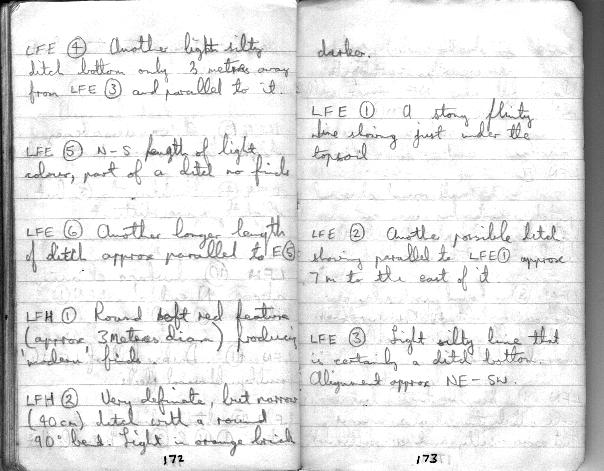 LFE ④ Another light silty
ditch bottom only 3 metres away
from LFE ③ and parallel to it.
LFE ⑤ N-S length of light
colour, part of a ditch no finds
LFE ⑥ Another longer length
of ditch approx parallel to E⑤
LFH ① Round soft red feature
(approx 3 Metres diam) producing
'modern' finds
LFH ② Very definate, but narrow
(40cm) ditch with a round
90° bend. Light in orange brick
172
darker.
LFE ① A stony flinty
line showing just under the
topsoil
LFE ② Another possible ditch
showing parallel to LFE① approx
7m to the east of it
LFE ③ Light silty line that
is certainly a ditch bottom.
Alignment approx NE-SW.
173